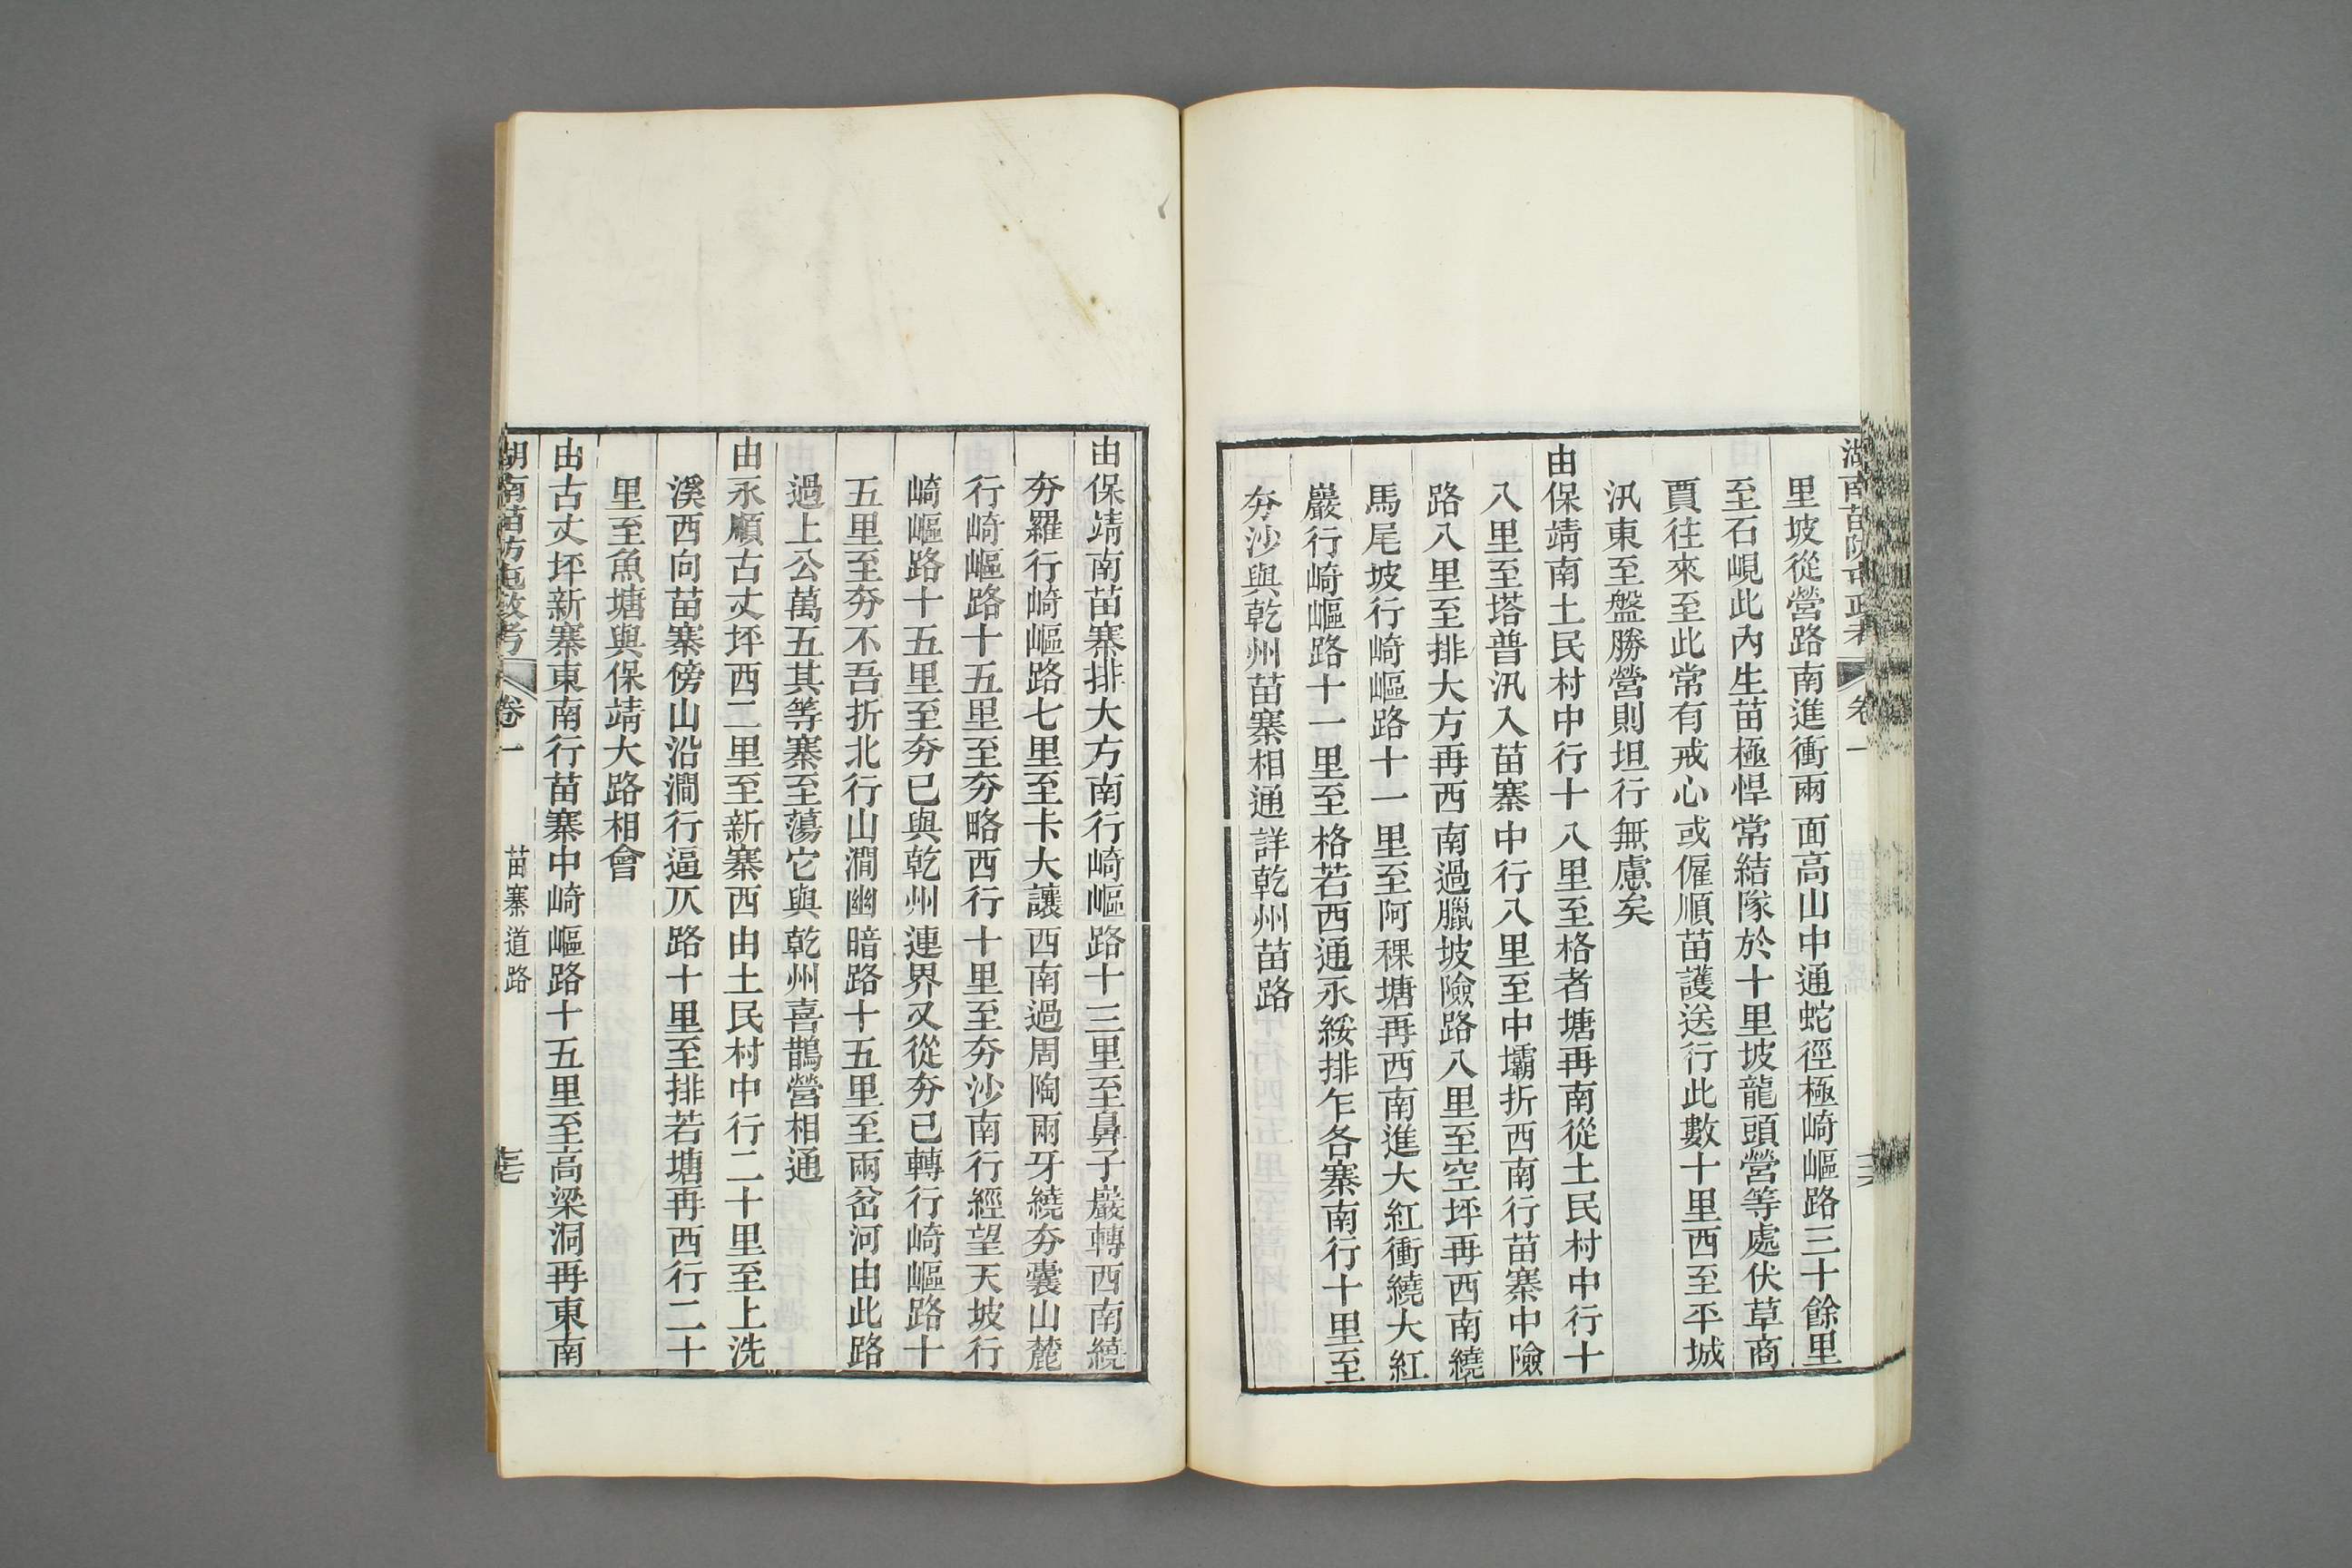 里坡從營路南進衝兩面高山中通蛇徑極崎嶇路三十餘里
至石峴此內生苗極悍常結隊於十里坡龍頭營等處伏草商
賈往來至此常有戒心或僱順苗護送行此數十里西至平城
汛東至盤勝營則坦行無慮矣
由保靖南土民村中行十八里至格者塘再南從土民村中行十
八里至塔普汛入苗寨中行八里至中壩折西南行苗寨中險
路八里至排大方再西南過臘坡險路八里至空坪再西南繞
馬尾坡行崎嶇路十一里至阿稞塘再西南進大紅衝繞大紅
巖行崎嶇路十一里至格若西通永綏排乍各寨南行十里至
夯沙與乾州苗寨相通詳乾州苗路
由保靖南苗寨排大方南行崎嶇路十三里至鼻子巖轉西南繞
夯羅行崎嶇路七里至卡大讓西南過周陶兩牙繞夯囊山麓
行崎嶇路十五里至夯略西行十里至夯沙南行經望天坡行
崎嶇路十五里至夯已與乾州連界又從夯已轉行崎嶇路十
五里至夯不吾折北行山澗幽暗路十五里至兩岔河由此路
過上公萬五其等寨至蕩它與乾州喜鵲營相通
由永順古丈坪西二里至新寨西由土民村中行二十里至上洗
溪西向苗寨傍山沿澗行逼仄路十里至排若塘再西行二十
里至魚塘與保靖大路相會
由古丈坪新寨東南行苗寨中崎嶇路十五里至高梁洞再東南
湖南苗防屯政考 卷一 苗寨道路